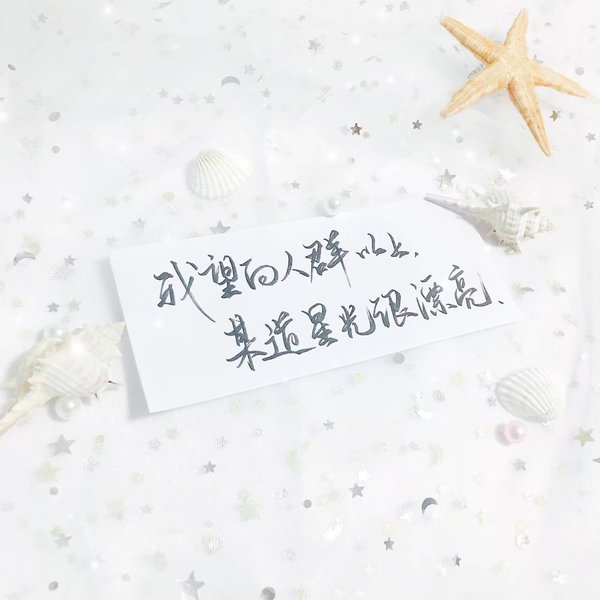 我望向人群以上.
某道星光很漂亮、